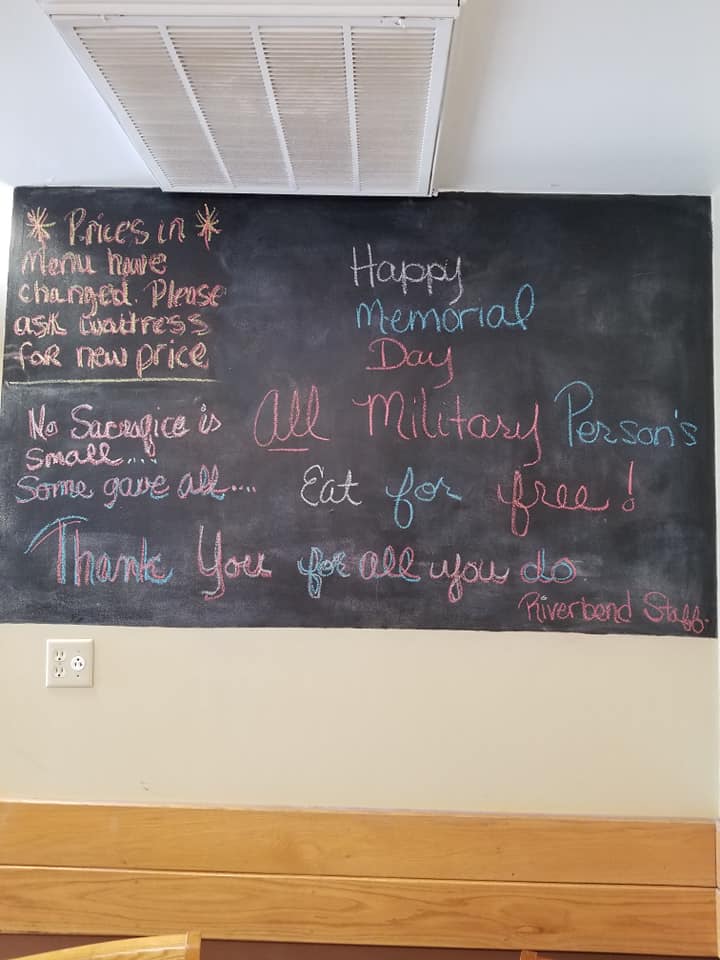 * Prices in *
Menu have
changed. Please
ask waitress
for new price
Happy
Memorial
Day
No Sacrafice is
small....
Some gave all....
All Military Person's
Eat for free!
Thank You for all you do
Riverbend Staff.